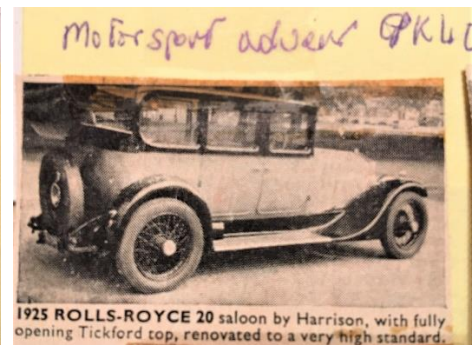 Motorsport advert
1925 ROLLS-ROYCE 20 saloon by Harrison, with fully
opening Tickford top, renovated to a very high standard.